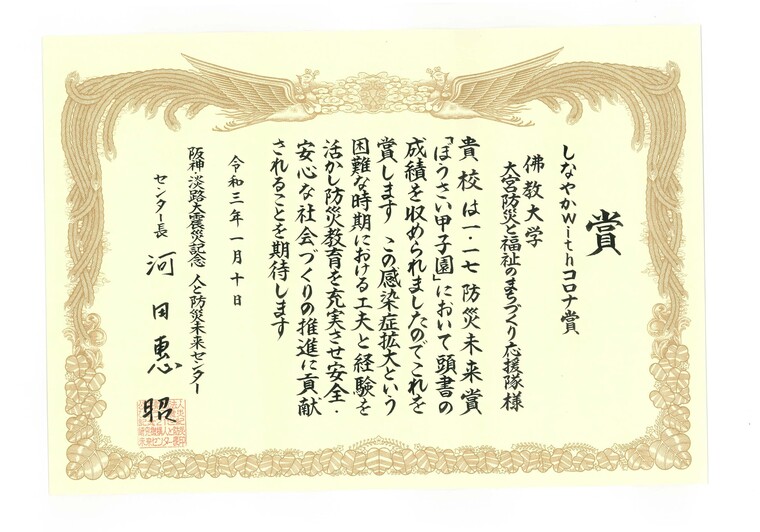 賞
しなやかwithコロナ賞
佛教大学
大宮防災と福祉のまちづくり応援隊 様
貴校は一・一七防災未来賞
「ぼうさい甲子園」において頭書の
成績を収められましたのでこれを
賞します この感染症拡大という
困難な時期における工夫と経験を
活かし防災教育を充実させ安全・
安心な社会づくりの推進に貢献
されることを期待します
令和三年一月十日
阪神・淡路大震災記念 人と防災未来センター
センター長 河田惠昭